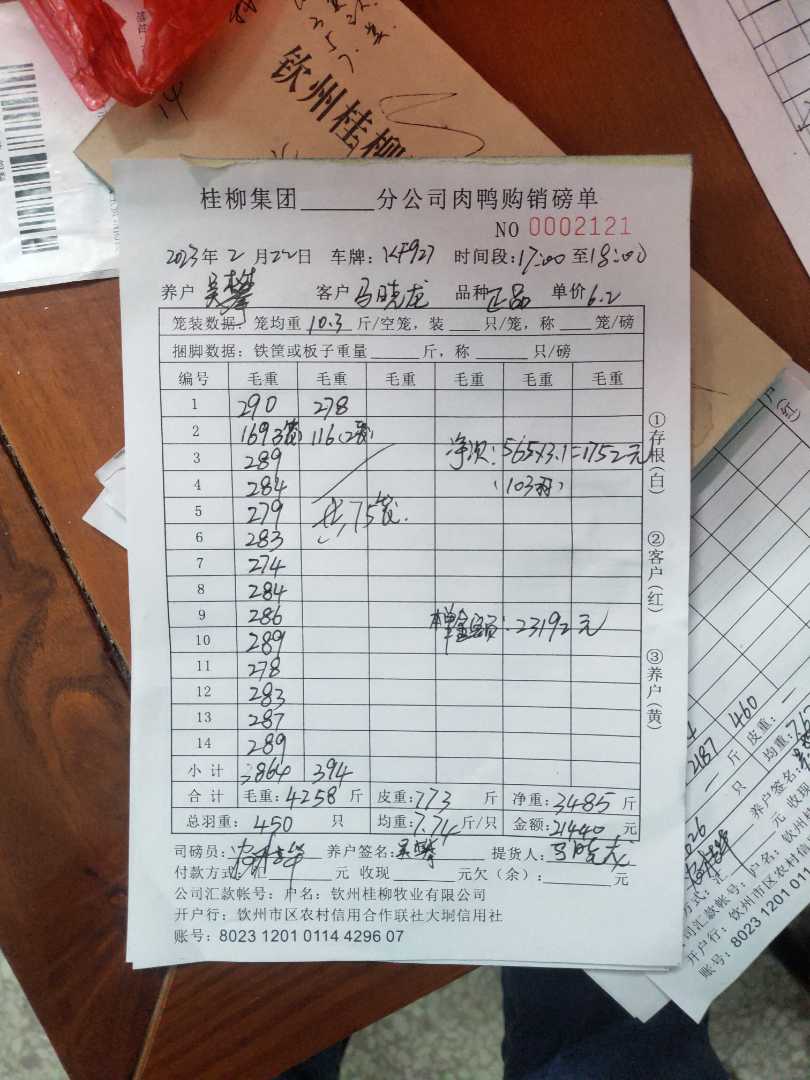 钦州桂柳
桂柳集团______分公司肉鸭购销磅单
NO 0002121
2023年2月22日 车牌:KF927 时间段:17:00至18:00
养户 吴攀 客户 马晓龙 品种 正品 单价 6.2
笼装数据:笼均重 10.3 斤/空笼,装___只/笼,称___笼/磅
捆脚数据:铁筐或板子重量_____斤,称_____只/磅
编号 毛重 毛重 毛重 毛重 毛重 毛重
1 290 278
2 169(3装) 116(2装)
3 289 净次:565×3.1=1752元
4 284 (103羽)
5 279 共75装.
6 283
7 274
8 284
9 286 本单金额:23192元
10 289
11 278
12 283
13 287
14 289
小计 3864 394
合计 毛重:4258斤 皮重:773斤 净重:3485斤
总羽重:450只 均重:7.74斤/只 金额:21440元
司磅员: 养户签名:吴攀 提货人:马晓龙
付款方式:汇______元 收现______元欠(余):______元
公司汇款帐号:户名:钦州桂柳牧业有限公司
开户行:钦州市区农村信用合作联社大垌信用社
账号:8023 1201 0114 4296 07
①存根(白)
②客户(红)
③养户(黄)
(红)
2187 460
皮重:
均重:
养户签名:
元 收现
账号:8023 1201 011